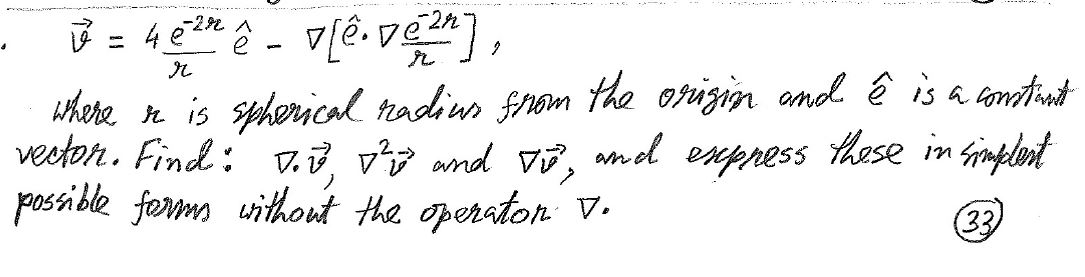 . v⃗ = 4 e^{-2r}/r ê - ∇[ê·∇ e^{-2r}/r],
where r is spherical radius from the origin and ê is a constant
vector. Find: ∇.v⃗, ∇²v⃗ and ∇v⃗, and express these in simplest
possible forms without the operator ∇.
(33)